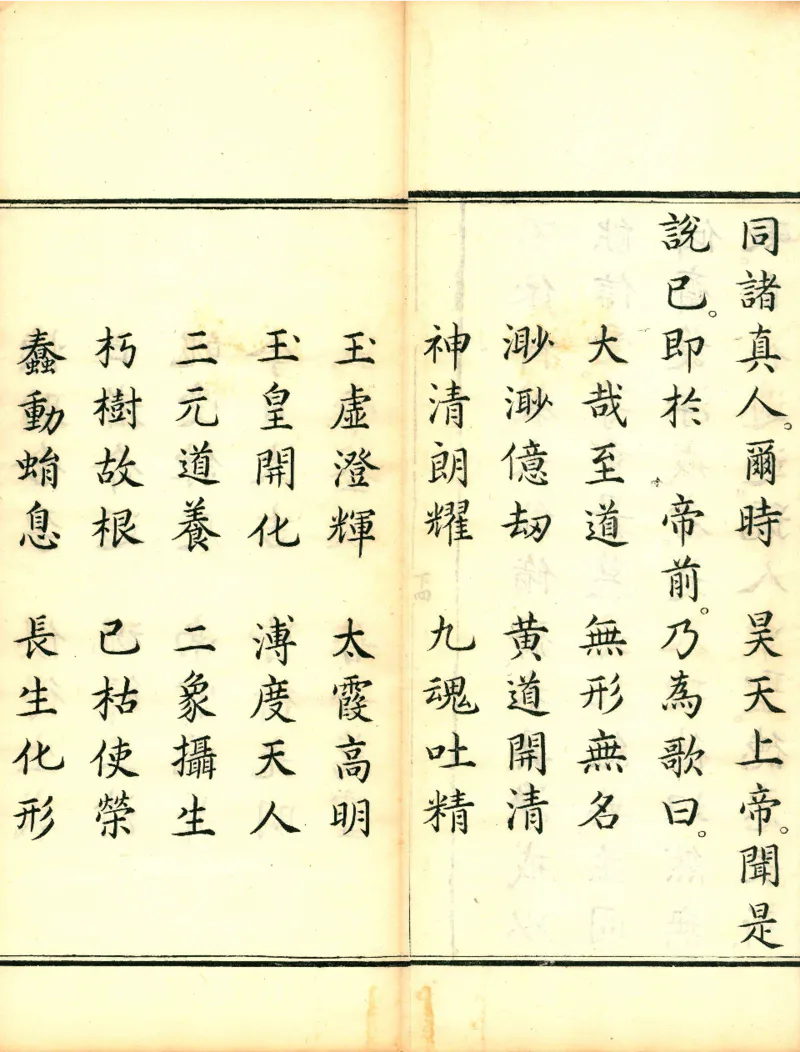 同諸真人。爾時　昊天上帝。聞是
說已。即於　帝前。乃為歌曰。
大哉至道　無形無名
渺渺億劫　黃道開清
神清朗耀　九魂吐精
玉虛澄輝　太霞高明
玉皇開化　溥度天人
三元道養　二象攝生
朽樹故根　已枯使榮
蠢動蛸息　長生化形